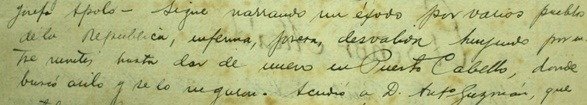 Josefa Apolo — Sigue narrando un éxodo por varios pueblos
de la República, enferma, pobre, desvalida huyendo por
tre montes hasta dar de nuevo en Puerto Cabello, donde
buscó asilo y se lo negaron. Acudió a D. Antº Guzmán, que